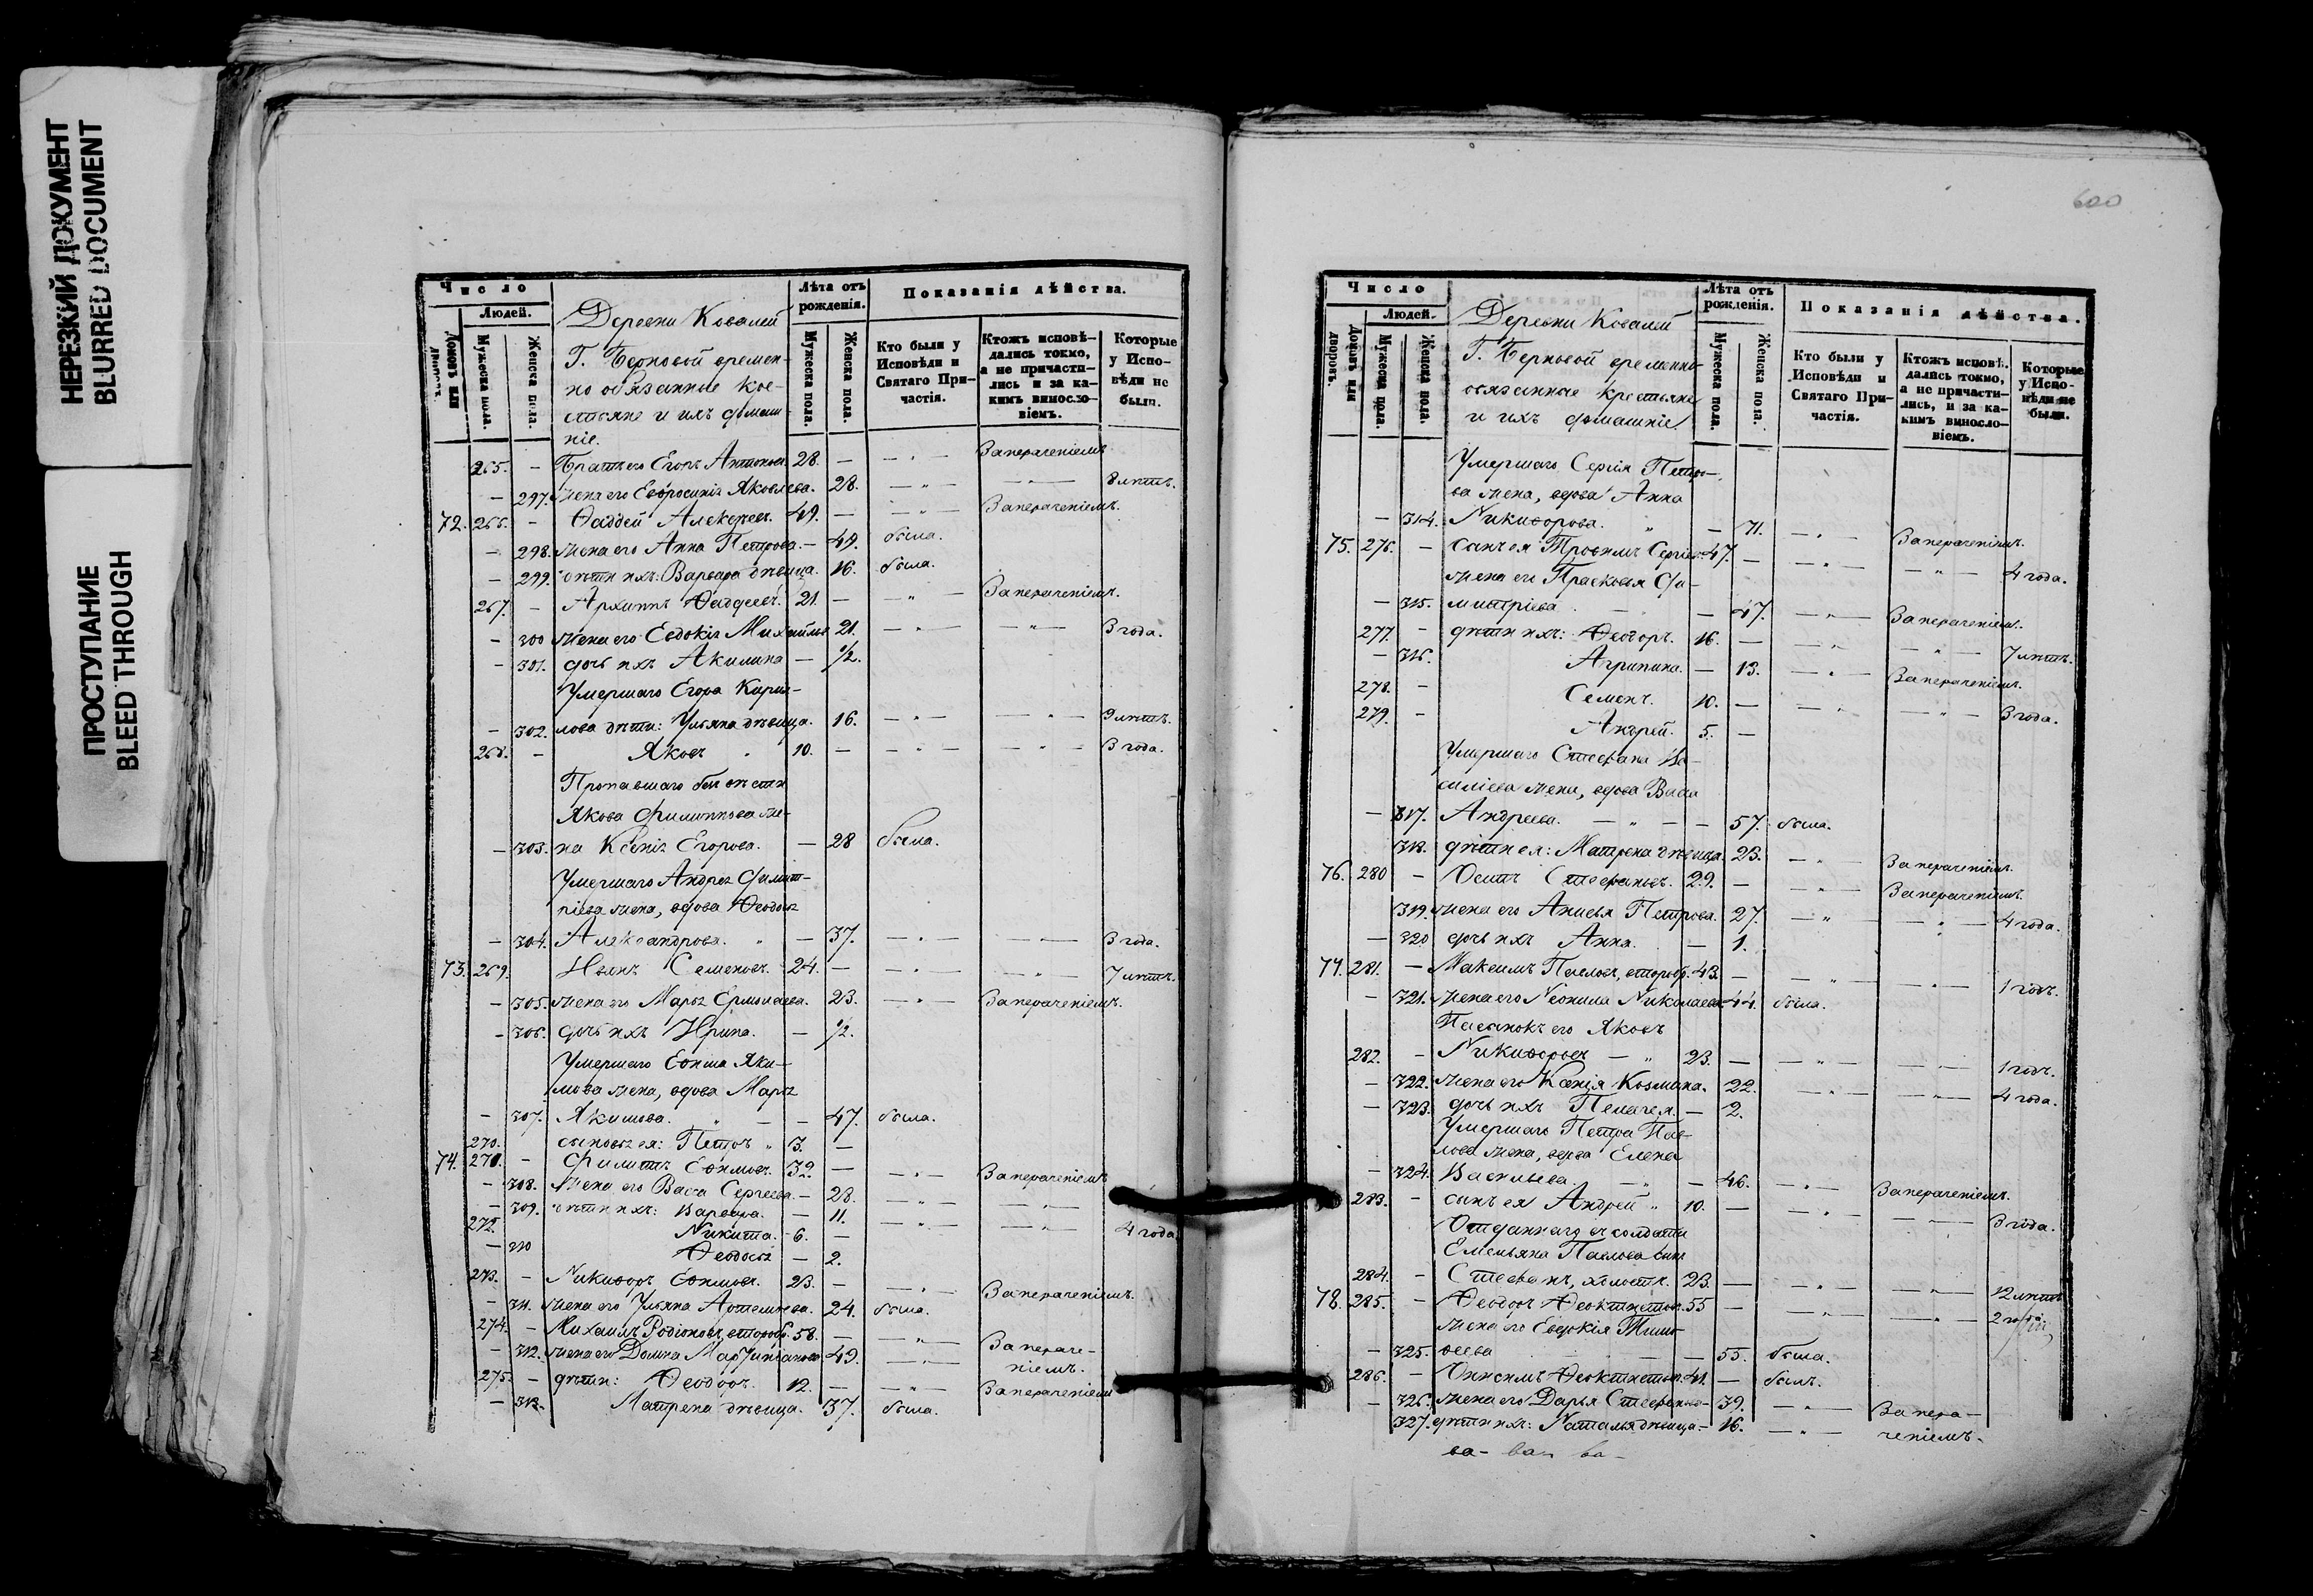 НЕРЕЗКИЙ ДОКУМЕНТ
BLURRED DOCUMENT
ПРОСТУПАНИЕ
BLEED THROUGH
Число
Людей.
Домовъ или дворовъ.
Мужеска пола.
Женска пола.
Деревни Ковалей
Г. Берновой времен-
но обязанные кре-
стьяне и ихъ домаш-
ніе.
Лѣта отъ рожденія.
Мужеска пола.
Женска пола.
Показанія дѣйства.
Кто были у Исповѣди и Святаго При-частія.
Ктожъ исповѣ-дались токмо, а не причасти-лись и за ка-кимъ винословіемъ.
Которые у Испо-вѣди не были.
265. — Братъ его Егоръ Антоновъ 28. — — „ — За нераченіемъ
— 297. Жена его Евфросинія Яковлева. 28. — „ — — „ — 8 лѣтъ.
72. 266. — Ѳаддей Алексѣевъ. 49. — — „ — За нераченіемъ.
— 298. Жена его Анна Петрова. — 49. была.
— 299. дѣти ихъ: Варвара дѣвица. 16. была.
267. — Архиппъ Ѳаддеевъ. 21. — — „ — За нераченіемъ.
— 300 Жена его Евдокія Михайлов 21. — „ — — „ — 3 года.
— 301. дочь ихъ Акилина — 1/2.
Умершаго Егора Кирил-
— 302. лова дѣти: Ульяна дѣвица. 16. — „ — — „ — 9 лѣтъ.
268. — Яковъ „ 10. — — „ — — „ — 3 года.
Пропавшаго безъ вѣсти
Якова Филиппова же-
— 303. на Ксенія Егорова. — 28 была.
Умершаго Андрея Филип-
піева жена, вдова Ѳеодосія
— 304. Александрова. „ — 37. — „ — — „ — 3 года.
73. 269. Иванъ Семеновъ. 24. — — „ — — „ — 7 лѣтъ.
— 305. Жена его Марѳа Ермолаева. 23. — „ — За нераченіемъ.
— 306. дочь ихъ Ирина. — 1/2.
Умершаго Еѳима Яки-
мова жена, вдова Марѳа
— 307. Якимова. „ — — 47. была.
270. сыновья ея: Петръ „ 3. —
74. 271. — Филиппъ Еѳимовъ. 32. — — „ — За нераченіемъ
— 308. Жена его Васса Сергеева. — 28. — „ — — „ —
— 309. дѣти ихъ: Варвара. — 11. — „ — — „ — 4 года
272. Никита. 6. —
— 310 Ѳеодосія — 2.
273. — Никифоръ Еѳимовъ. 23. — — „ — За нераченіемъ.
— 311. Жена его Ульяна Артемьева. 24. была.
274. — Михаилъ Родіоновъ, второбр. 58. — — „ — За нераче-
— 312. Жена его Домна Мартиніанова 49. — „ — ніемъ.
275. — дѣти: Ѳеодоръ. 12. — — „ — За нераченіемъ
— 313. Матрена дѣвица. 37. была.
600
Число
Людей.
Домовъ или дворовъ.
Мужеска пола.
Женска пола.
Деревни Ковалей
Г. Берновой временно-
обязанные крестьяне
и ихъ домашніе.
Лѣта отъ рожденія.
Мужеска пола.
Женска пола.
Показанія дѣйства.
Кто были у Исповѣди и Святаго При-частія.
Ктожъ исповѣ-дались токмо, а не причасти-лись, и за ка-кимъ виносло-віемъ.
Которые у Испо-вѣди не были.
Умершаго Сергія Петро-
ва жена, вдова Анна
— 314. Никифорова. „ — 71. — „ — За нераченіемъ.
75. 276. — Сынъ ея Трофимъ Сергіевъ 47. — — „ — — „ — 4 года.
Жена его Прасковья Ди-
— 315. митріева — 47. — „ — За нераченіем.
277. — дѣти ихъ: Ѳеодоръ. 16. — — „ — — „ — 7 лѣтъ.
— 316. Агрипина. — 13. — „ — За нераченіем.
278. — Семенъ. 10. — — „ — — „ — 3 года.
279. — Андрей. 5. —
Умершаго Стефана Ва-
силіева жена, вдова Васса
— 317. Андреева. — „ — — 57. была.
318. дѣти ея: Матрена дѣвица 23. — „ — За нераченіем.
76. 280 — Осипъ Стефановъ. 29. — — „ — За нераченіемъ.
319. Жена его Анисья Петрова. 27. — „ — — „ — 4 года.
— 320 дочь ихъ Анна. — 1.
77. 281. — Максимъ Павловъ, второбр. 43. — — „ — — „ — 1 годъ.
— 321. Жена его Неонила Николаева 44. была.
Пасынокъ его Яковъ
282. — Никифоровъ — „ 23. — — „ — — „ — 1 годъ.
— 322. Жена его Ксенія Козмина. 22. — „ — — „ — 4 года.
— 323. дочь ихъ Пелагея. — 2.
Умершаго Петра Пав-
лова жена, вдова Елена
— 324. Васильева. — „ — 46. — „ — За нераченіемъ.
283. — сынъ ея Андрей „ 10. — — „ — — „ — 3 года.
Отданнаго въ солдаты
Емельяна Павлова сын
284. — Стефанъ, холостъ. 23. — — „ — — „ — 12 лѣтъ
78. 285. — Ѳеодоръ Ѳеоктистов. 55 — — „ — — „ — 2 года
Жена его Евдокія Тимо-
— 325. ѳеева — — 55. была.
286. — Онисимъ Ѳеоктистов. 41. — былъ.
— 326. Жена его Дарья Стефанова 39. — „ — За нера-
327. дѣти ихъ: Наталья дѣвица — 16. — „ — ченіемъ.
ва — ва ва —